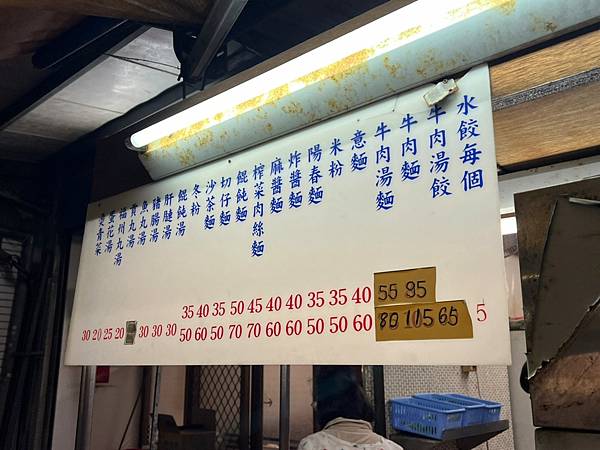 水餃每個
牛肉湯餃
牛肉麵
牛肉湯麵
意麵
米粉
陽春麵
炸醬麵
麻醬麵
榨菜肉絲麵
餛飩麵
切仔麵
沙茶麵
冬粉
餛飩湯
肝腱湯
豬腸湯
魚丸湯
貢丸湯
福州丸湯
蛋花湯
燙青菜
35 40 35 50 45 40 40 35 35 40 55 95
30 20 25 20 30 30 30 50 60 50 70 70 60 60 50 50 60 80 115 65 5